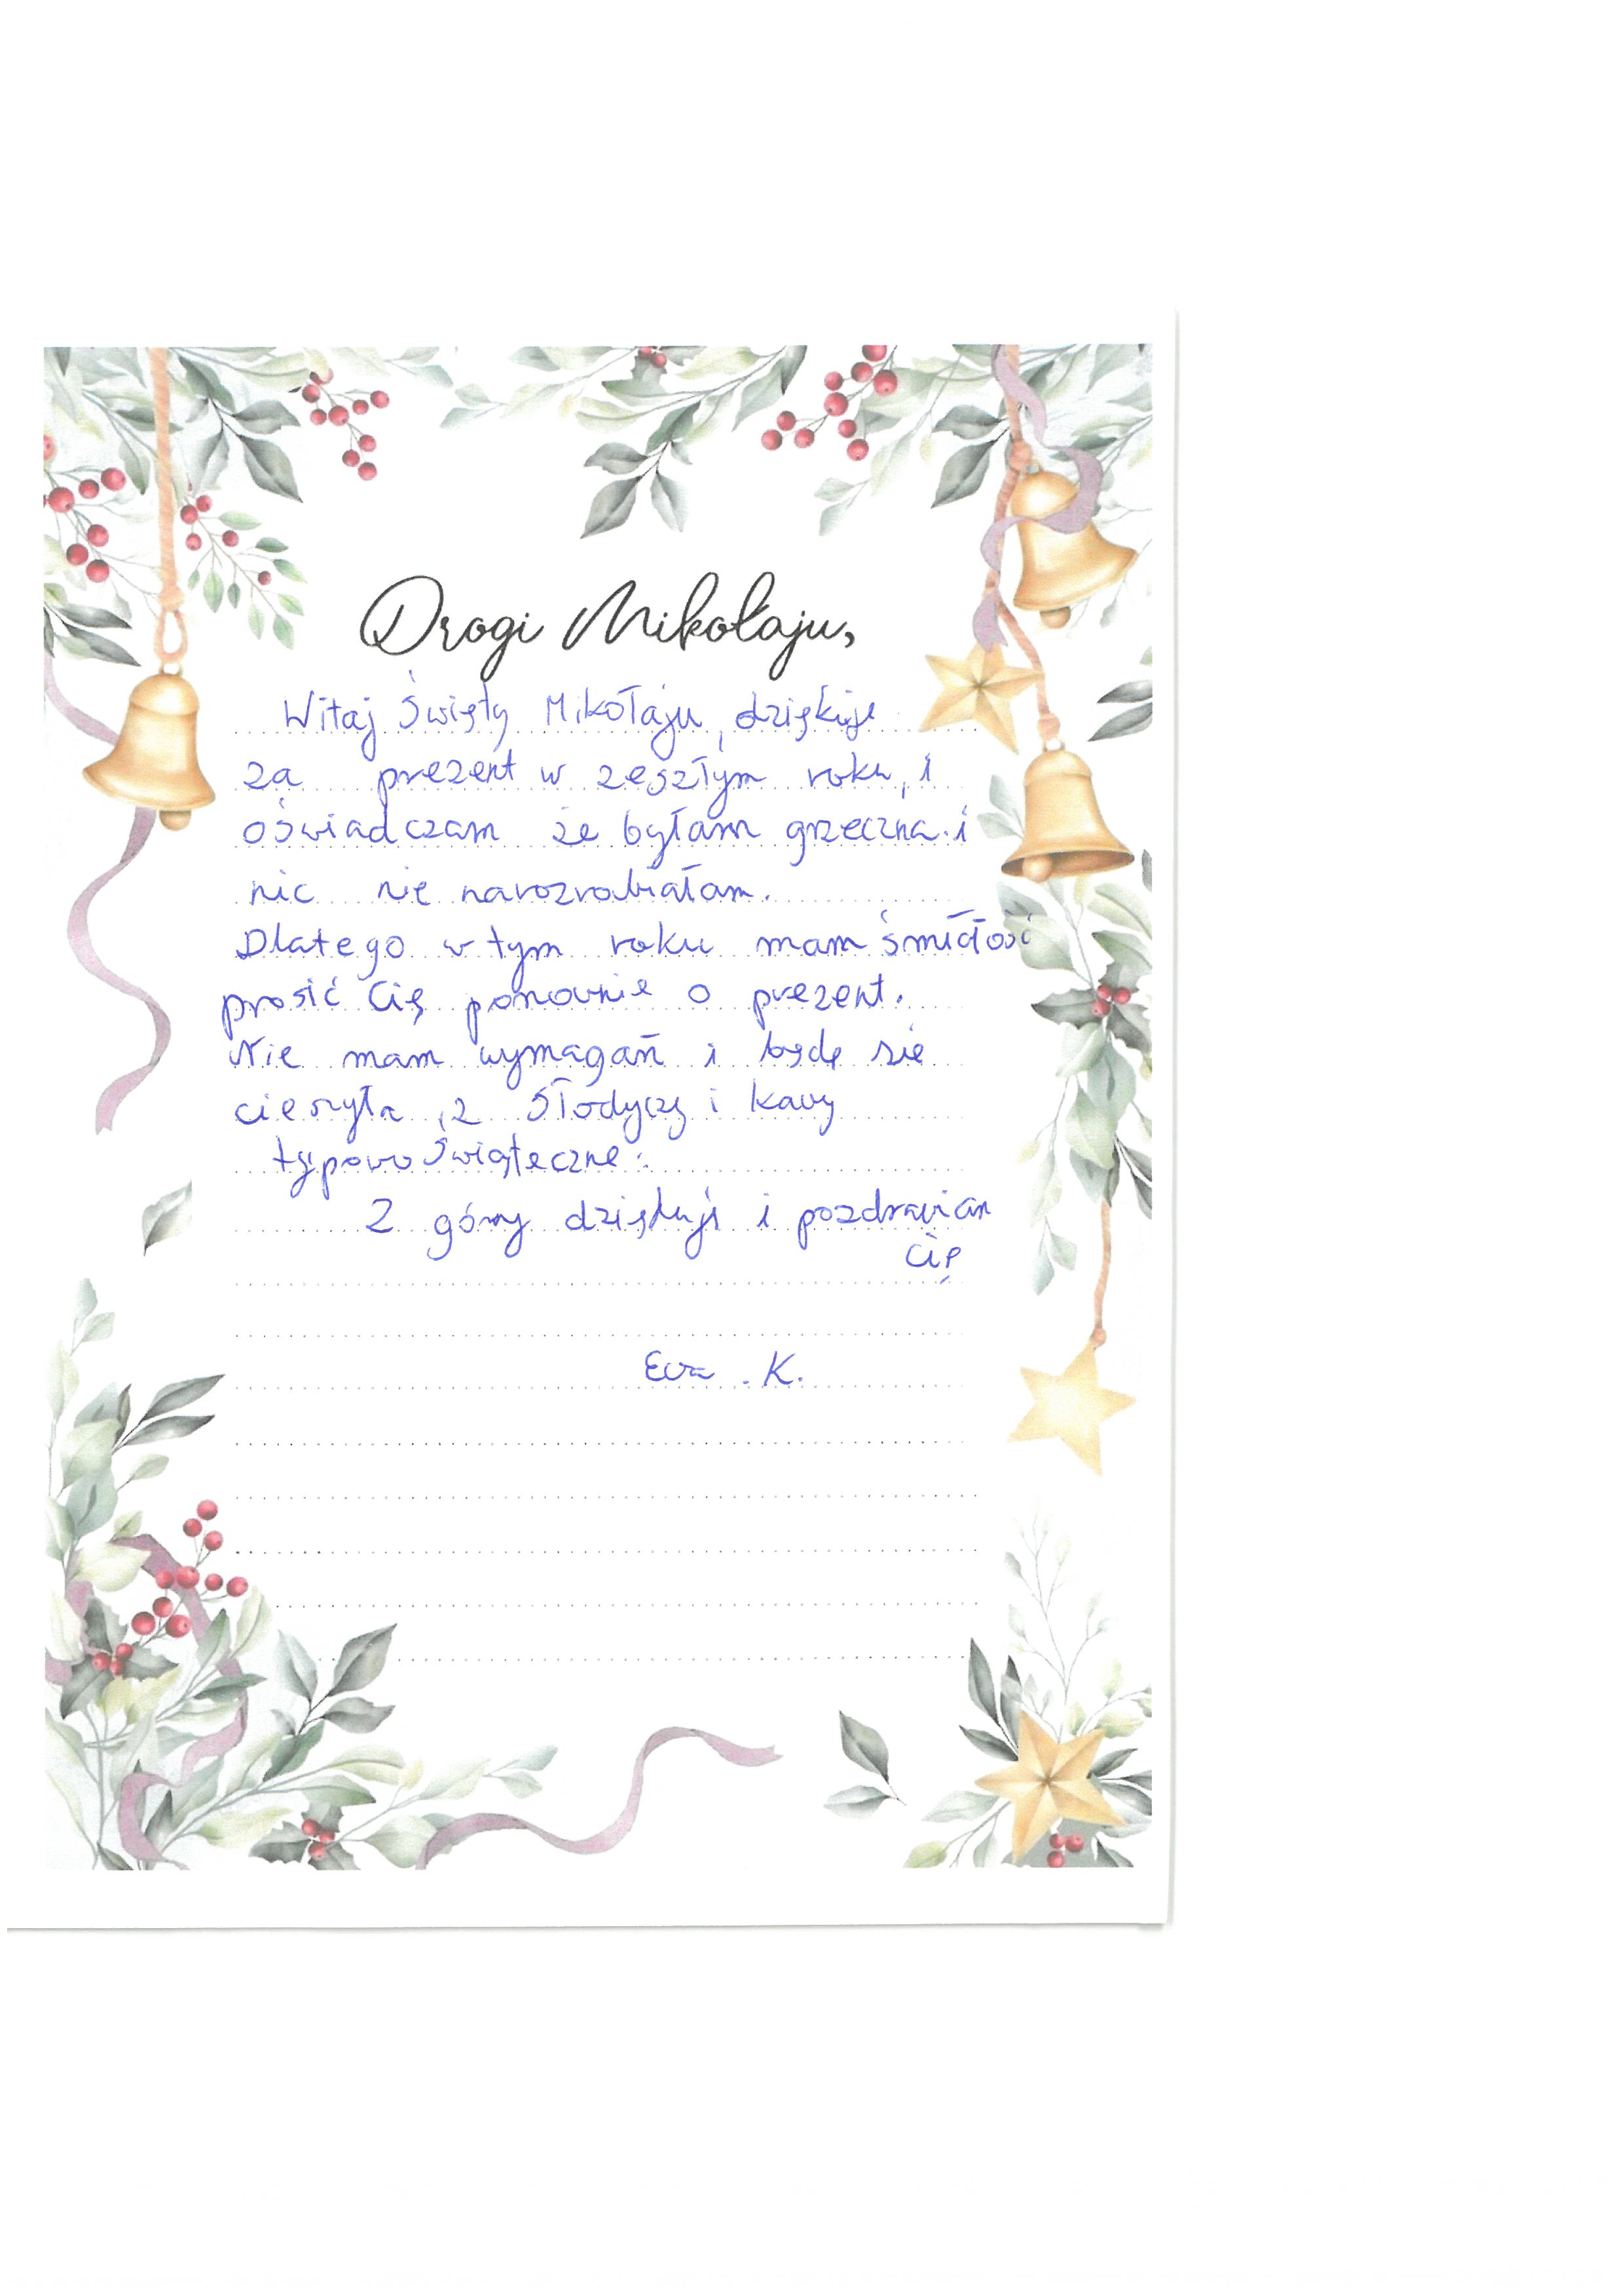 Drogi Mikołaju,
Witaj Święty Mikołaju, dziękuje
za prezent w zeszłym roku, i
oświadczam że byłam grzeczna i
nic nie narozrabiałam.
Dlatego w tym roku mam śmiałość
prosić Cię ponownie o prezent.
Nie mam wymagań i będę się
cieszyła, z słodyczy i kawy
typowo świąteczne.
Z góry dziękuję i pozdrawiam
Cię
Ewa. K.